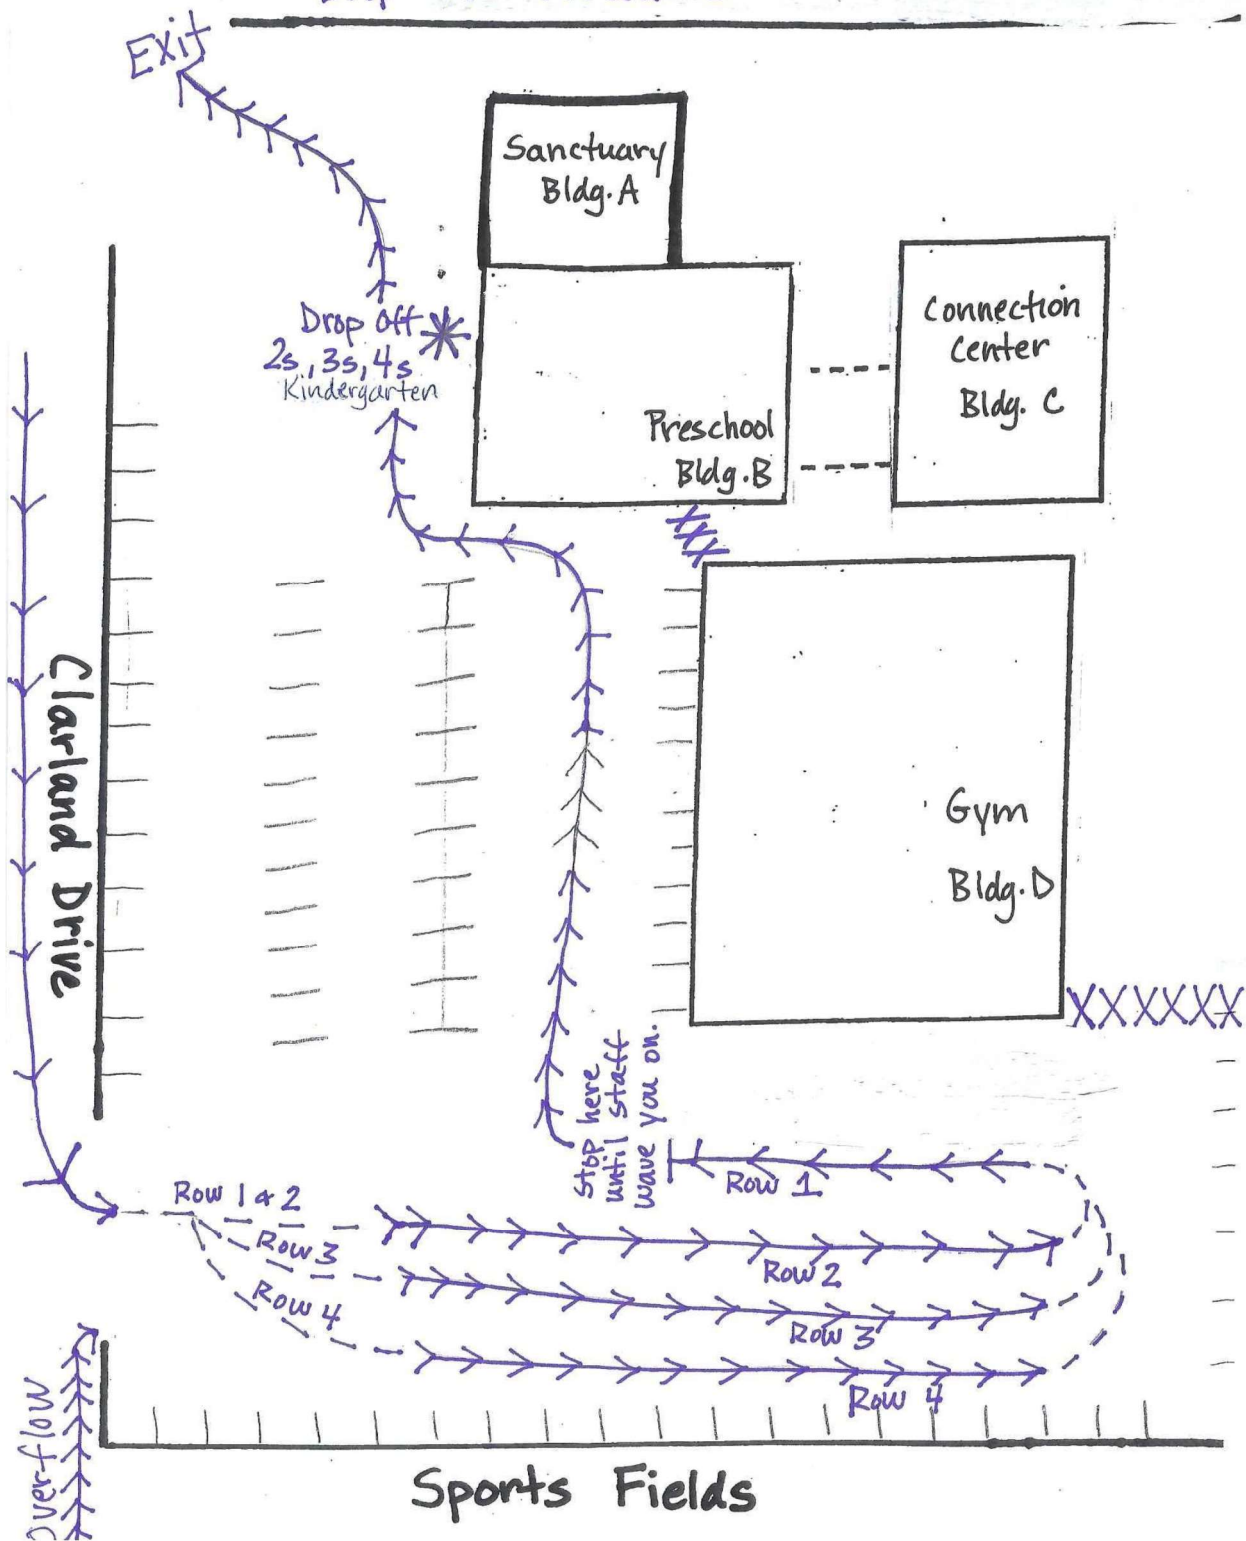 Exit
Sanctuary
Bldg. A
Connection
Center
Bldg. C
Drop off
2s, 3s, 4s
Kindergarten
Preschool
Bldg. B
Clarland Drive
Gym
Bldg. D
XXXXXX
Stop here
until staff
wave you on.
Row 1
Row 1 & 2
Row 3
Row 4
Row 2
Row 3
Row 4
Overflow
Sports Fields